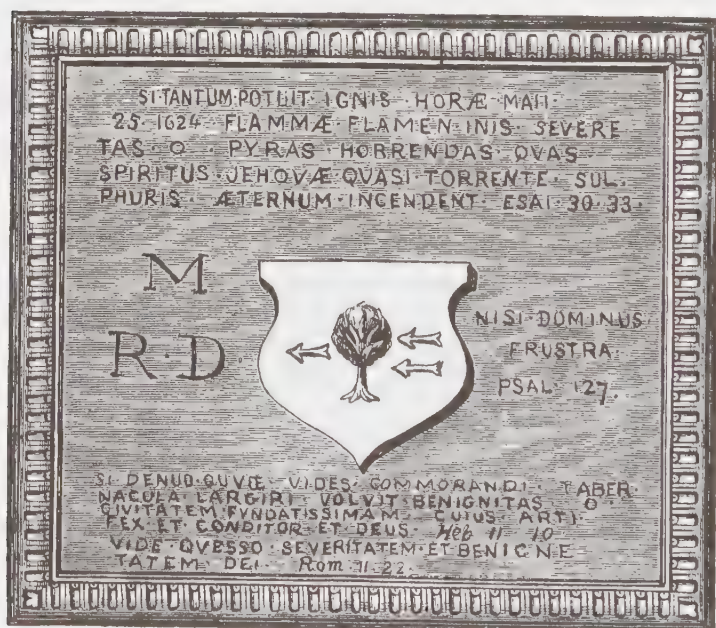 SI TANTUM·POTUIT· IGNIS · HORÆ MAII·
25· 1624· FLAMMÆ FLAMEN·INIS· SEVERE
TAS· O · PYRAS· HORRENDAS QVAS·
SPIRITUS·JEHOVÆ·QVASI·TORRENTE· SUL.
PHURIS· ÆTERNUM·INCENDENT· ESAI·30·33·
M
R·D·
NISI·DOMINUS·
FRUSTRA·
PSAL· 127.
SI DENUO·QUVÆ· VIDES COMMORANDI· TABER
NACULA·LARGIRI· VOLVIT·BENIGNITAS· O·
CIVITATEM·FVNDATISSIMAM· CUIUS· ARTI·
FEX·ET·CONDITOR·ET·DEUS· Heb 11· 10
VIDE·QVESSO·SEVERITATEM·ET·BENIGNE
TATEM· DEI· Rom 11·22·